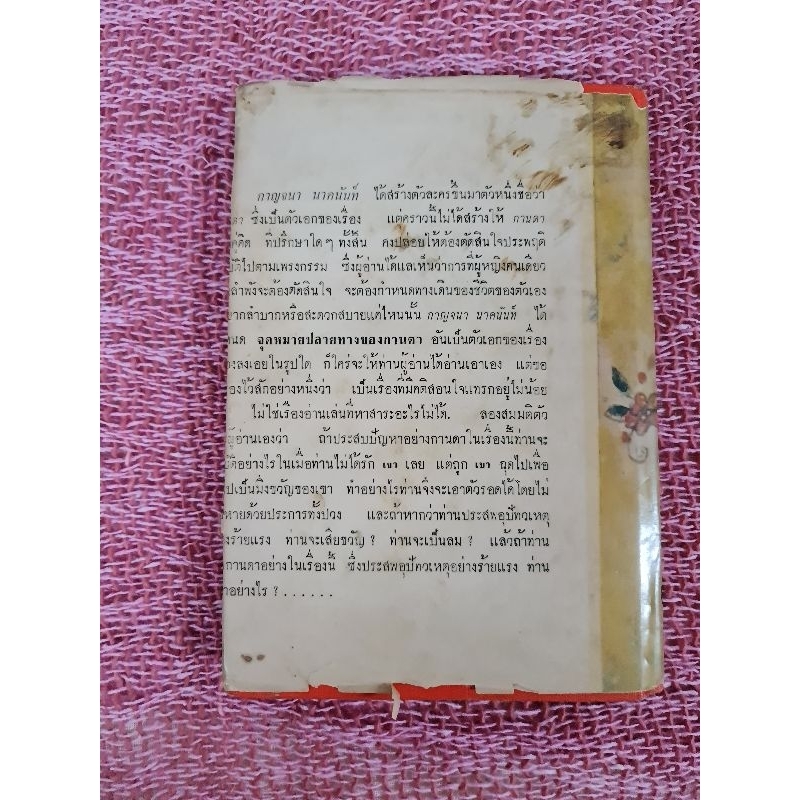 กาญจนา นาคนันท์ ได้สร้างตัวละครขึ้นมาตัวหนึ่งชื่อว่า
ดา ซึ่งเป็นตัวเอกของเรื่อง แต่คราวนี้ไม่ได้สร้างให้ กานดา
คู่คิด ที่ปรึกษาใดๆ ทั้งสิ้น คงปล่อยให้ต้องตัดสินใจประพฤติ
บัติไปตามเพรงกรรม ซึ่งผู้อ่านได้แลเห็นว่าการที่ผู้หญิงคนเดียว
ลำพังจะต้องตัดสินใจ จะต้องกำหนดทางเดินของชีวิตของตัวเอง
ากลำบากหรือสะดวกสบายแค่ไหนนั้น กาญจนา นาคนันท์ ได้
นด จุดหมายปลายทางของกานดา อันเป็นตัวเอกของเรื่อง
งลงเอยในรูปใด ก็ใคร่จะให้ท่านผู้อ่านได้อ่านเอาเอง แต่ขอ
องไว้สักอย่างหนึ่งว่า เป็นเรื่องที่มีคติสอนใจแทรกอยู่ไม่น้อย
ไม่ใช่เรื่องอ่านเล่นที่หาสาระอะไรไม่ได้. ลองสมมติตัว
ผู้อ่านเองว่า ถ้าประสบปัญหาอย่างกานดาในเรื่องนี้ท่านจะ
บัติอย่างไรในเมื่อท่านไม่ได้รัก เขา เลย แต่ถูก เขา ฉุดไปเพื่อ
ปเป็นมิ่งขวัญของเขา ทำอย่างไรท่านจึงจะเอาตัวรอดได้โดยไม่
หายด้วยประการทั้งปวง และถ้าหากว่าท่านประสพอุปัทวเหตุ
งร้ายแรง ท่านจะเสียขวัญ? ท่านจะเป็นลม? แล้วถ้าท่าน
กานดาอย่างในเรื่องนี้ ซึ่งประสพอุปัทวเหตุอย่างร้ายแรง ท่าน
าอย่างไร ? . . . . . .